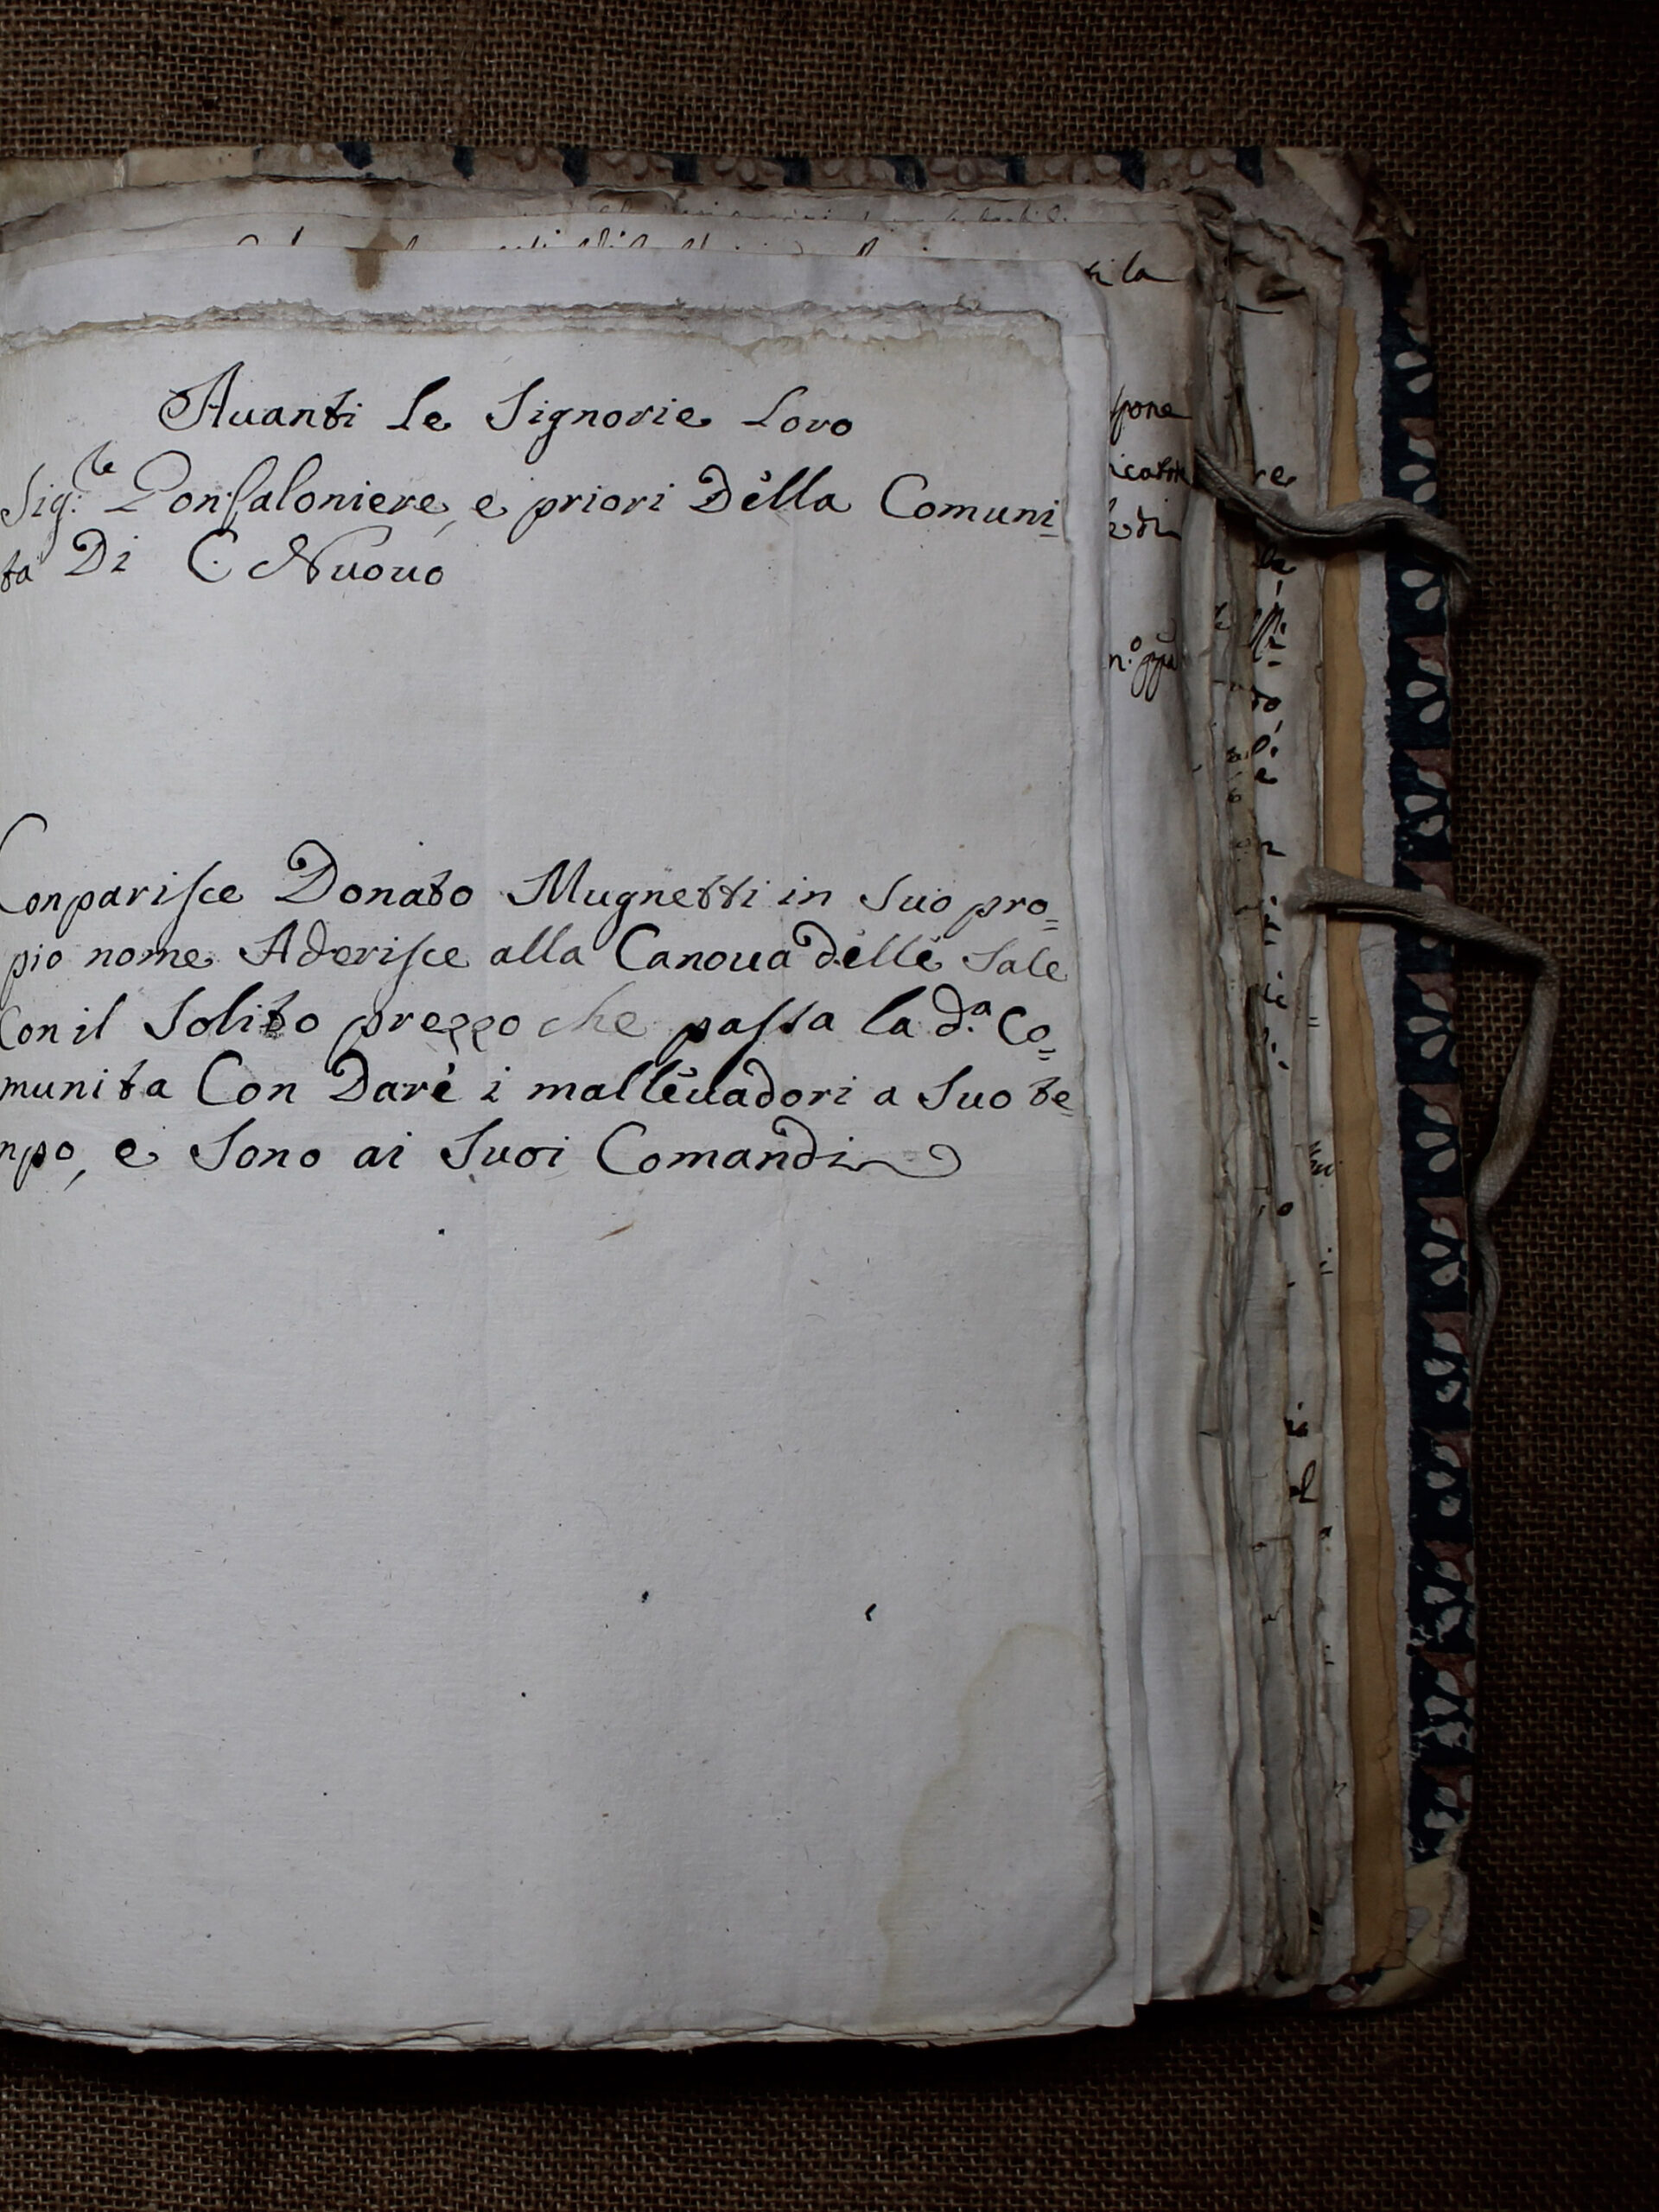 Auanti le Signorie Loro
Sig:re Gonfaloniere, e priori Della Comuni=
ta Di C. Nuouo
Conparisce Donato Mugnetti in Suo pro=
pio nome Aderisce alla Canoua delle Sale
Con il Solito prezzo che passa la d.a Co=
munita Con Dare i malleuadori a Suo te=
npo, e Sono ai Suoi Comandi
la
pone
re
n.o